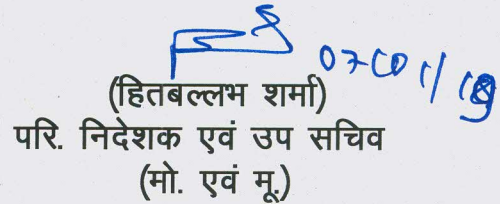 07/01/19
(हितबल्लभ शर्मा)
परि. निदेशक एवं उप सचिव
(मो. एवं मू.)